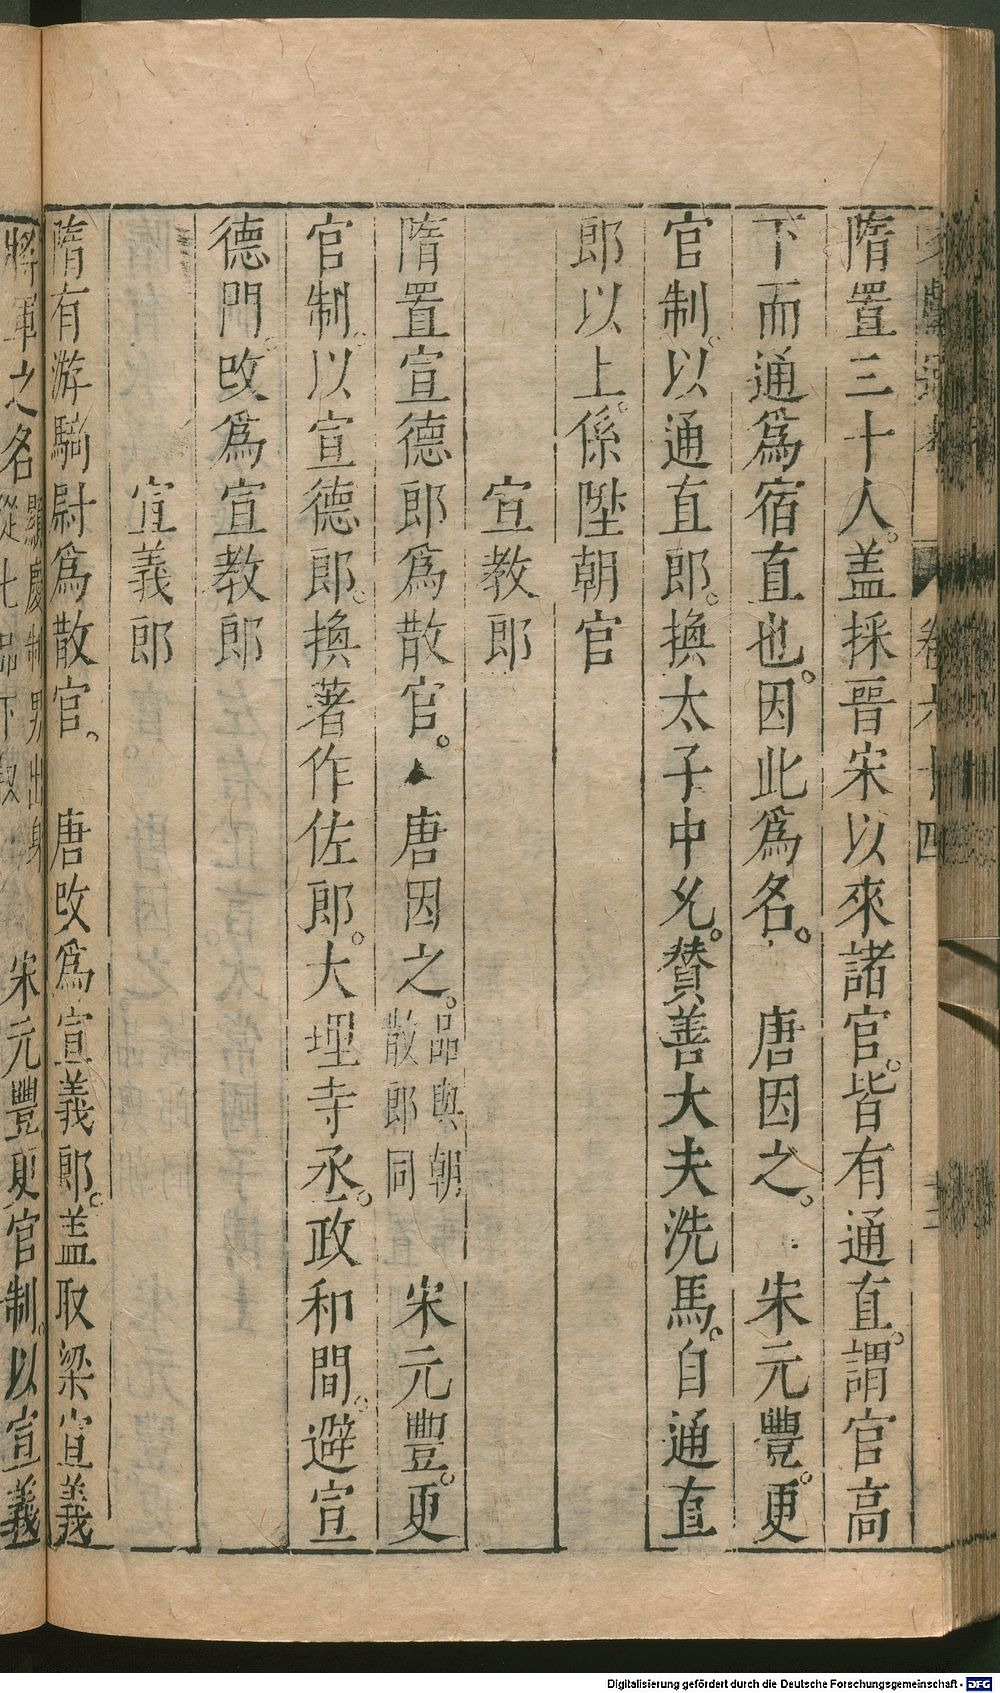 卷六十四
隋置三十人。盖採晉宋以來諸官。皆有通直。謂官高
下而通爲宿直也。因此爲名。　唐因之。　宋元豐。更
官制。以通直郎。換太子中允。賛善大夫洗馬。自通直
郎以上。係陞朝官
宣教郎
隋置宣德郎爲散官。　唐因之。品與朝散郎同　宋元豐。更
官制。以宣德郎。換著作佐郎。大理寺丞。政和間。避宣
德門。改爲宣教郎
宣義郎
隋有游騎尉爲散官。　唐改爲宣義郎。盖取梁宣義
將軍之名顯慶制男出身從七品下敘　宋元豐更官制。以宣義
Digitalisierung gefördert durch die Deutsche Forschungsgemeinschaft - DFG